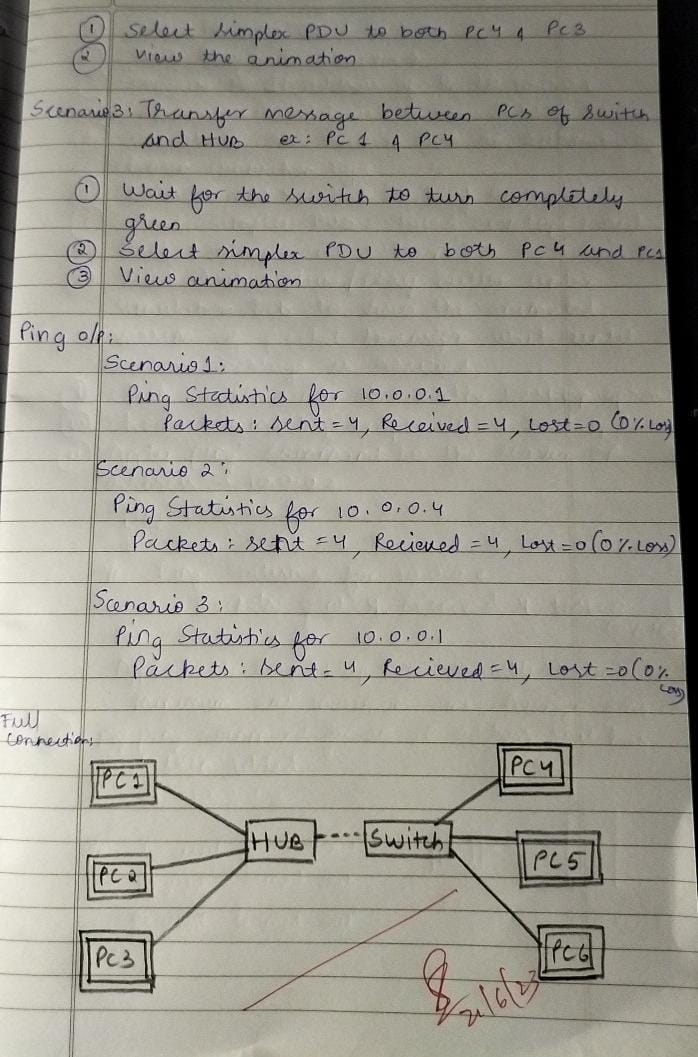 ① Select simplex PDU to both PC4 & PC3
② View the animation
Scenario3: Transfer message between PCs of switch
and HUB ex: PC 1 & PC4
① Wait for the switch to turn completely
green
② Select simplex PDU to both PC4 and PC1
③ View animation
Ping o/p:
Scenario 1:
Ping Statistics for 10.0.0.1
Packets: sent = 4, Received = 4, Lost = 0 (0% Loss)
Scenario 2:
Ping Statistics for 10.0.0.4
Packets: sent = 4, Recieved = 4, Lost = 0 (0% Loss)
Scenario 3:
Ping Statistics for 10.0.0.1
Packets: sent = 4, Recieved = 4, Lost = 0 (0%
Loss)
Full
connection:
PC1
PC4
HUB
Switch
PC2
PC5
PC3
PC6
21/6/23